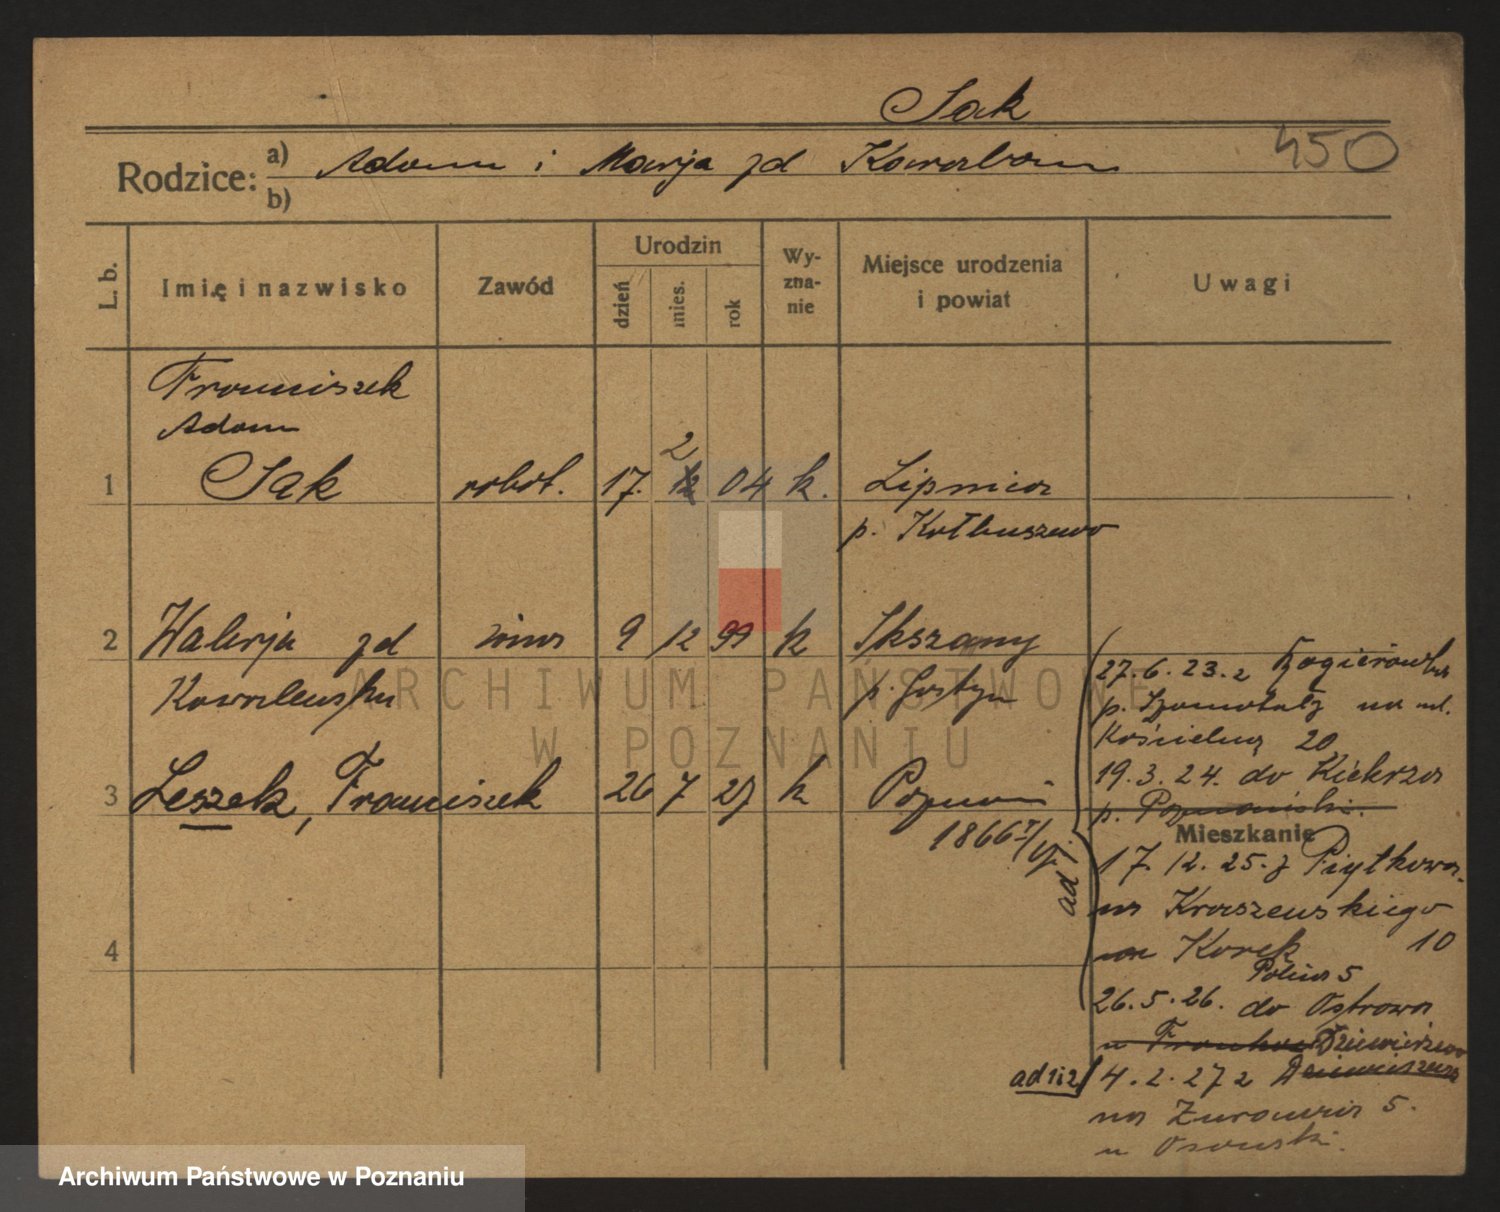 Sak
450
Rodzice: a) Adam i Marja zd
b)
L. b.
Imię i nazwisko
Zawód
Urodzin
dzień
mies.
rok
Wy-
zna-
nie
Miejsce urodzenia
i powiat
Uwagi
Franciszek
Adam
1 Sak robot. 17. 2 04 k. Lipnica
p. Kolbuszewo
2 Walerja zd żona 9 12 99 k
Kowalewska p. Gostyń
3 Leszek, Franciszek 26 7 27 k Poznań
1866
4
27.6.23. z
p. Szamotuły na ul.
Kościelną 20
19.3.24. do Kiekrza
p. Poznański.
Mieszkanie
ad 1.
17.12.25. z Piątkowa
na Kraszewskiego
10
Polna 5
26.5.26. do Ostrowa
ad 1i2
4.2.27 z
na Żurawia 5.
ARCHIWUM PAŃSTWOWE
W POZNANIU
Archiwum Państwowe w Poznaniu